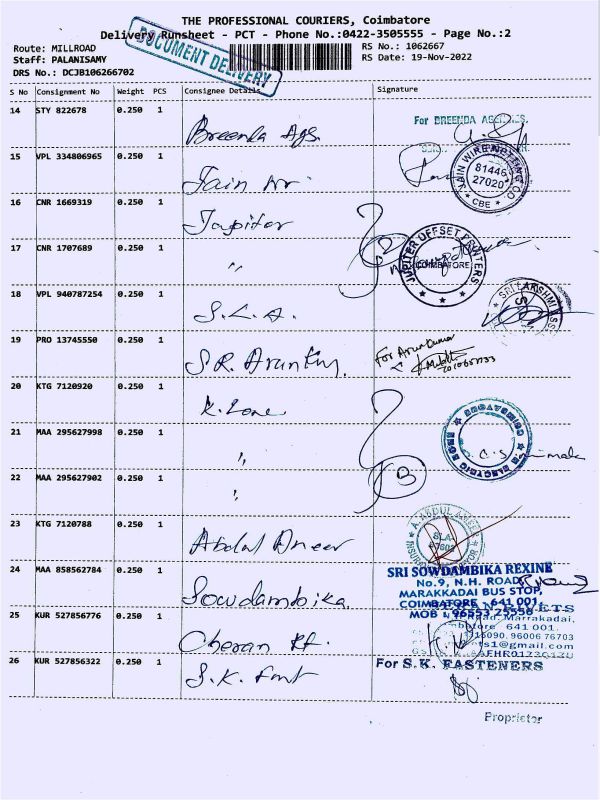 THE PROFESSIONAL COURIERS, Coimbatore
Delivery Runsheet - PCT - Phone No.:0422-3505555 - Page No.:2
DOCUMENT DELIVERY
Route: MILLROAD
RS No.: 1062667
Staff: PALANISAMY
RS Date: 19-Nov-2022
DRS No.: DCJB106266702
S No Consignment No Weight PCS Consignee Details Signature
14 STY 822678 0.250 1 Breenda Ags.
For BREENDA AGENCIES.
15 VPL 334806965 0.250 1 Jain
JAIN WIRE NETTING CO
81446
27020
CBE
16 CNR 1669319 0.250 1 Jupiter
17 CNR 1707689 0.250 1 "
2
JUPITER OFFSET PRINTERS
COIMBATORE
18 VPL 940787254 0.250 1 S.L.A.
SRI LAKSHMI
19 PRO 13745550 0.250 1 S.R. Arunkum.
For Arun kumar
20 KTG 7120920 0.250 1 K. Zone
21 MAA 295627998 0.250 1 "
22 MAA 295627902 0.250 1 "
3
23 KTG 7120788 0.250 1 Abdul Ameer
A. ABDUL AMEER
24 MAA 858562784 0.250 1 Sowdambika.
SRI SOWDAMBIKA REXINE
No.9, N.H. ROAD,
MARAKKADAI BUS STOP,
COIMBATORE 641 001.
MOB : 96553 25556
25 KUR 527856776 0.250 1 Cheran Rt.
Road, Marrakadai,
641 001.
96006 76703
ts1@gmail.com
26 KUR 527856322 0.250 1 S.K. Fast
For S.K. FASTENERS
Proprietor